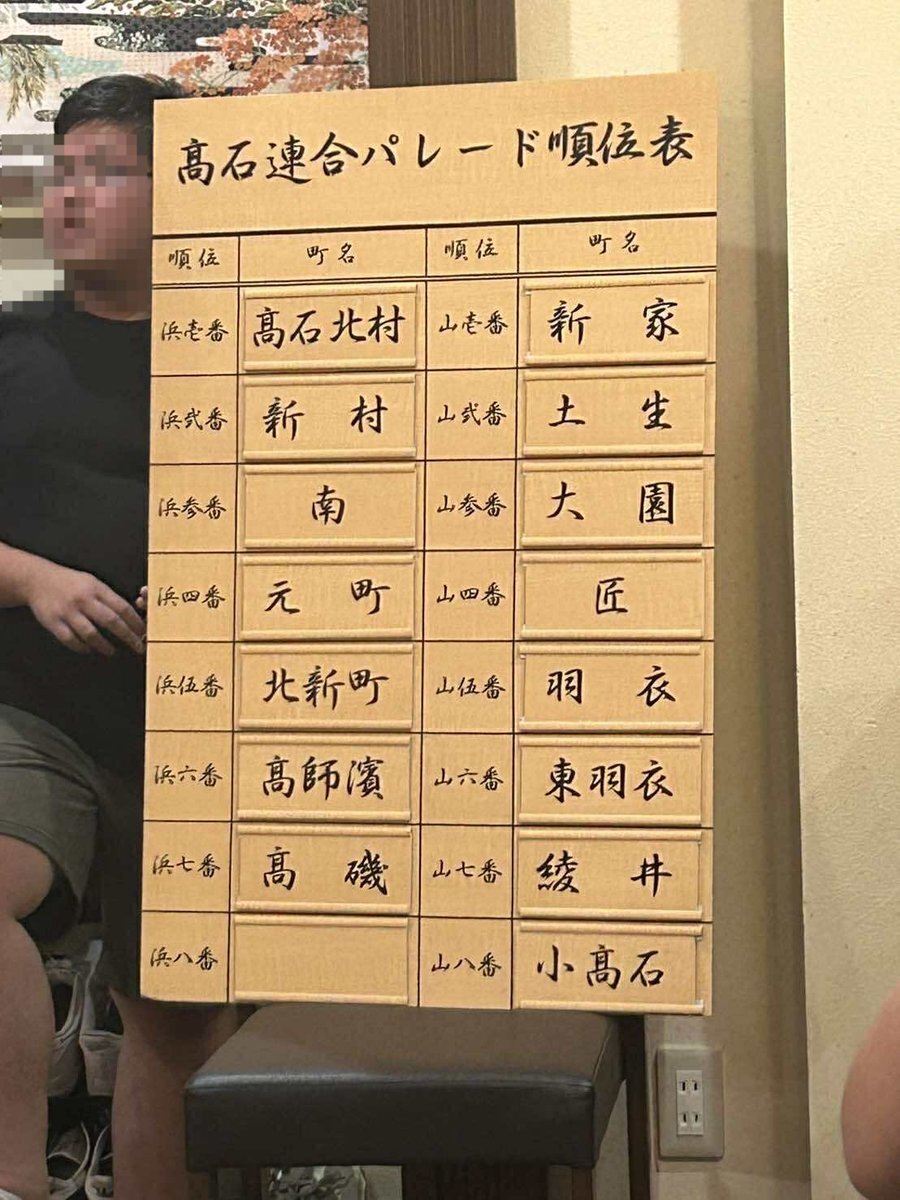 髙石連合パレード順位表
順位 町名 順位 町名
浜壱番 髙石北村 山壱番 新家
浜弐番 新村 山弐番 土生
浜参番 南 山参番 大園
浜四番 元町 山四番 匠
浜伍番 北新町 山伍番 羽衣
浜六番 髙師濱 山六番 東羽衣
浜七番 髙磯 山七番 綾井
浜八番 山八番 小髙石